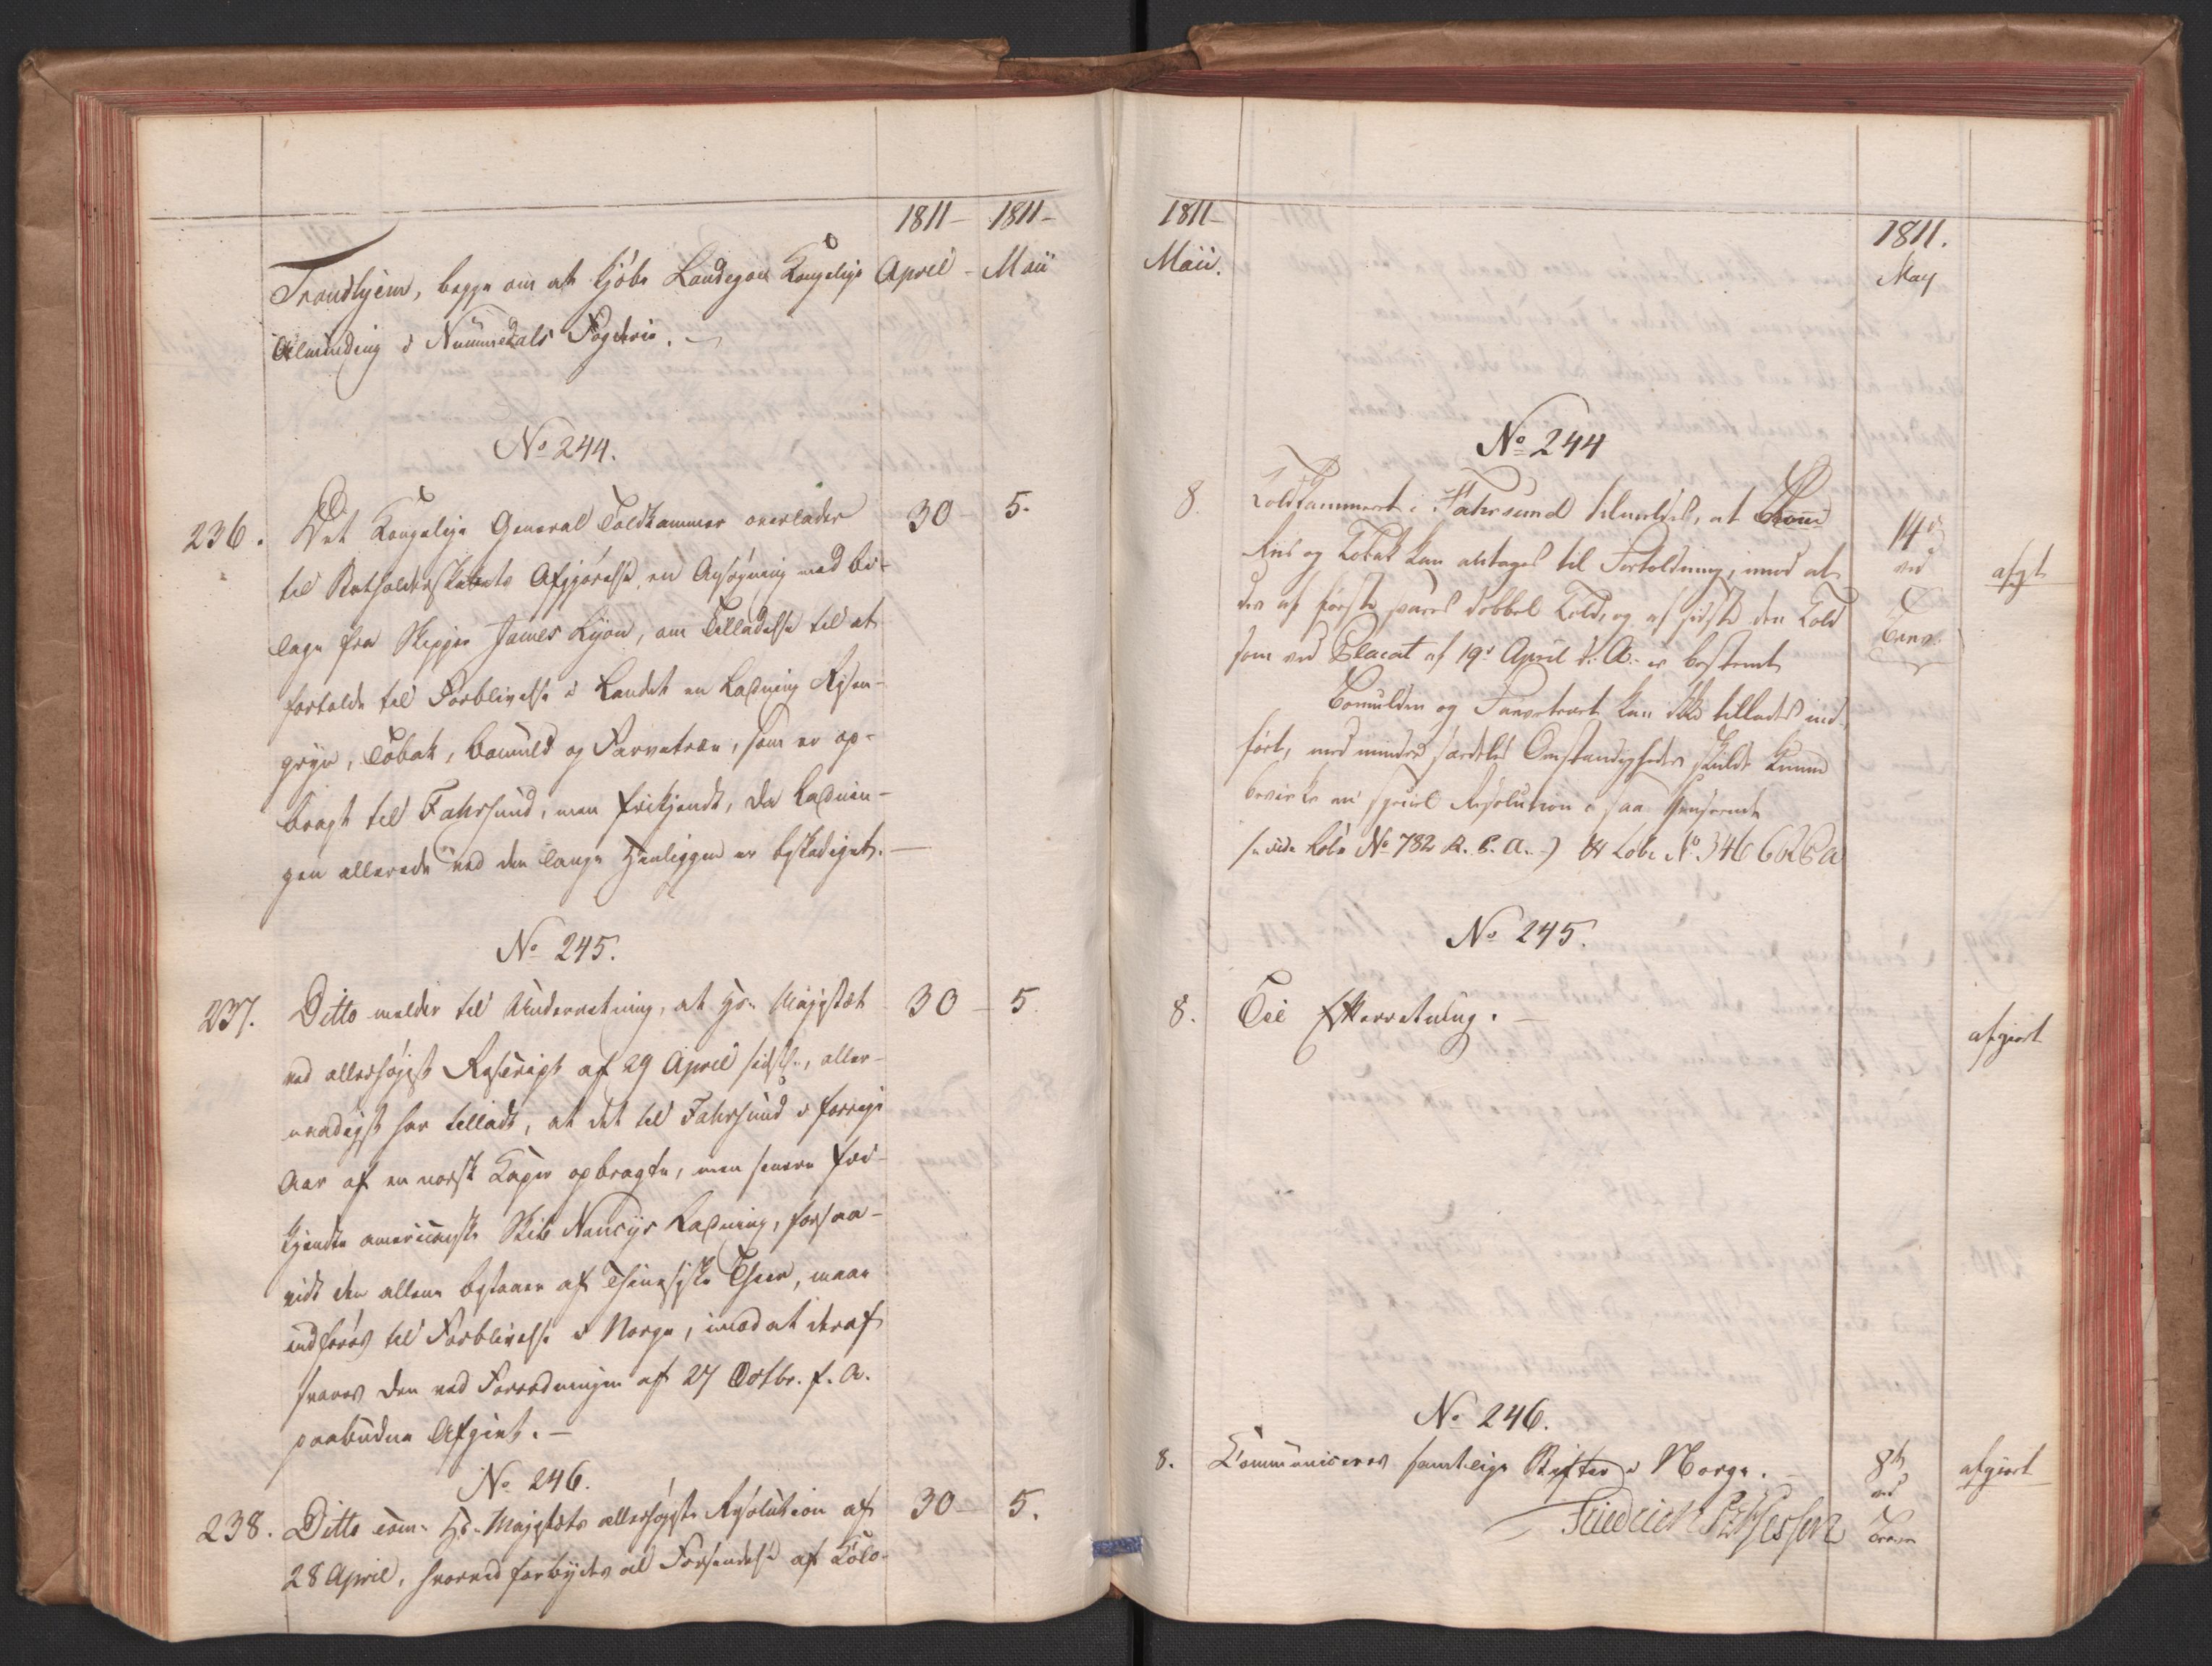 1811 - 1811 -
Trondhjem, begge om at kjøbe Landegode Kongelige April - Maii
Alminding i Nummedals Fogderie. -
No 244.
236. Det Kongelige General Toldkammer overlader 30 - 5.
til Statholderskabets Afgjørelse en Ansøgning med Bi-
lage fra Skipper James Lyon, om Tilladelse til at
fortolde til Forblivelse i Landet en Ladning Risen-
gryn, Tobak, Bomuld og Farvetræe, som er op-
bragt til Fahrsund, men frikjendt, da Ladnin-
gen allerede ved den lange Henliggen er beskadiget. -
No 245.
237. Ditto melder til Underretning, at Hs. Majestæt 30 - 5.
ved allerhøjest Rescript af 29 April sidstl., aller-
naadigst har tilladt, at det til Fahrsund i forrige
Aar af en norsk Kaper opbragte, men senere fri-
kjendte americanske Skib Nancys Ladning, forsaa-
vidt den allene bestaaer af Chinesiske Theer, maae
indføres til Forblivelse i Norge, imod at deraf
svares den ved Forordningen af 27 Octbr. f. A.
paabudne Afgivt. -
No 246.
238. Ditto com. Hs. Majestæts allerhøjeste Resolution af 30 - 5.
28 April, hvorved forbydes al Forsendelse af Colo-
1811 -
Maii.
1811.
May
No 244
8. Toldkammeret i Fahrsund tilmeldes, at
Riis og Tobak kan antages til Fortoldning, imod at
der af første svares dobbel Told, og af sidste den Told
som ved Placat af 19d April d. A. er bestemt
Bomulden og Farvetræet kan ikke tillades ind-
ført, med mindre særdeles Omstændigheder skulde kunne
bevirke en speciel Resolution i saa Henseende
(: vide Lobe No 782 R. C. A. :) Lobe No 346
14d
ved
afgt
No 245.
8. Til Efterretning. -
afgiort
No 246.
8. Communiceres samtlige Stifter i Norge. -
Friedrich PzHessen
8de
ved
afgiort